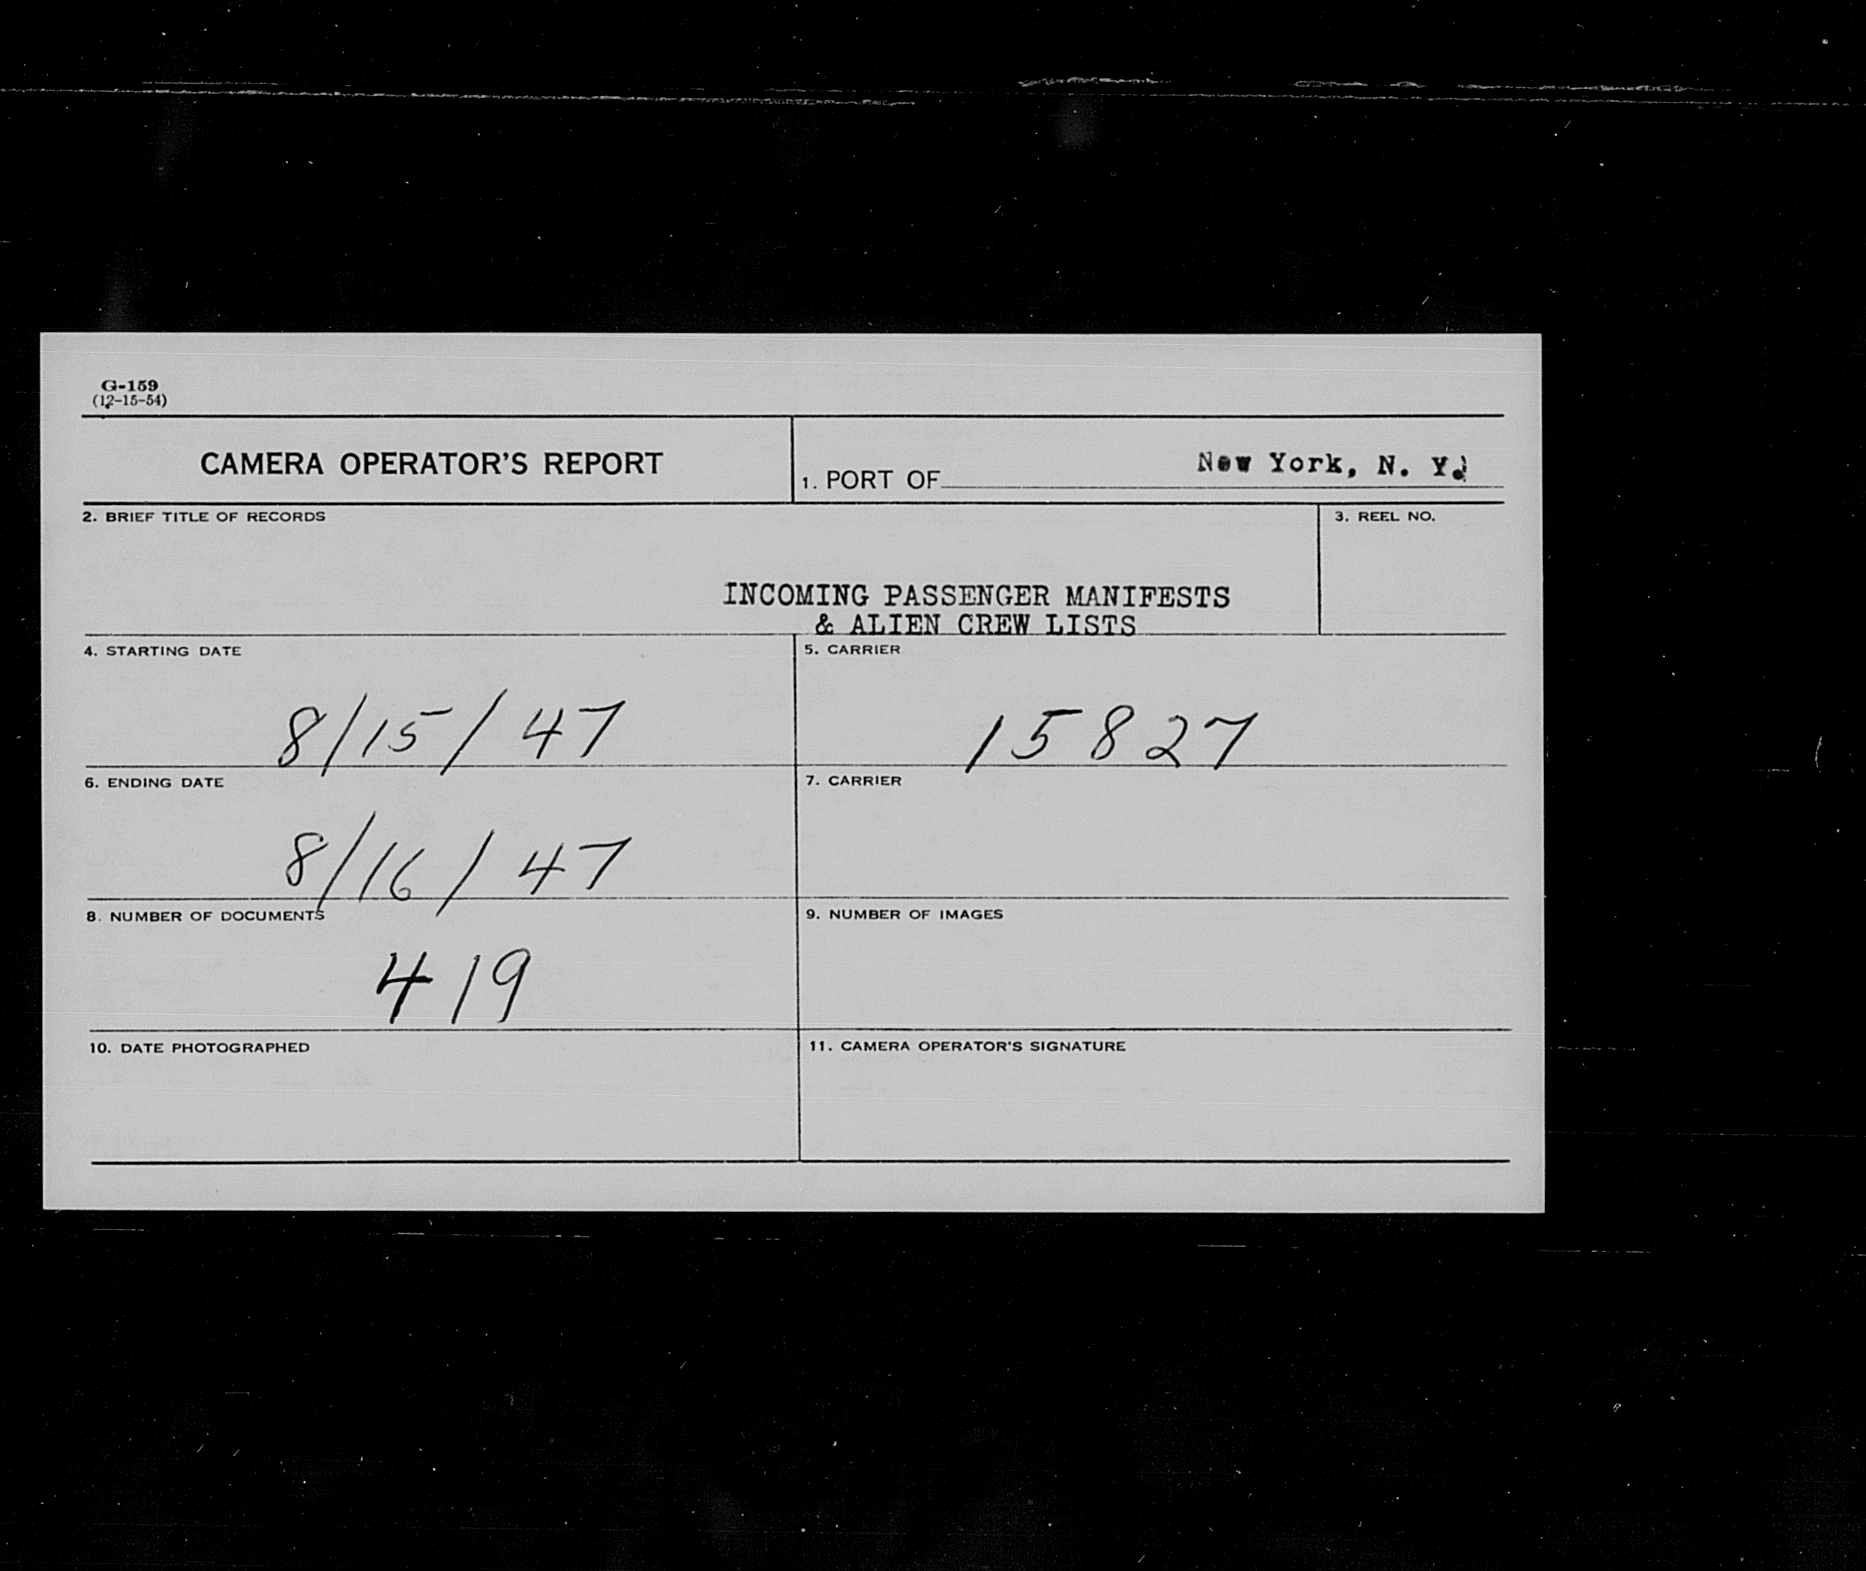 G-159
(12-15-54)
CAMERA OPERATOR'S REPORT
1. PORT OF New York, N. Y.
2. BRIEF TITLE OF RECORDS
3. REEL NO.
INCOMING PASSENGER MANIFESTS
& ALIEN CREW LISTS
4. STARTING DATE
8/15/47
5. CARRIER
15827
6. ENDING DATE
8/16/47
7. CARRIER
8. NUMBER OF DOCUMENTS
419
9. NUMBER OF IMAGES
10. DATE PHOTOGRAPHED
11. CAMERA OPERATOR'S SIGNATURE